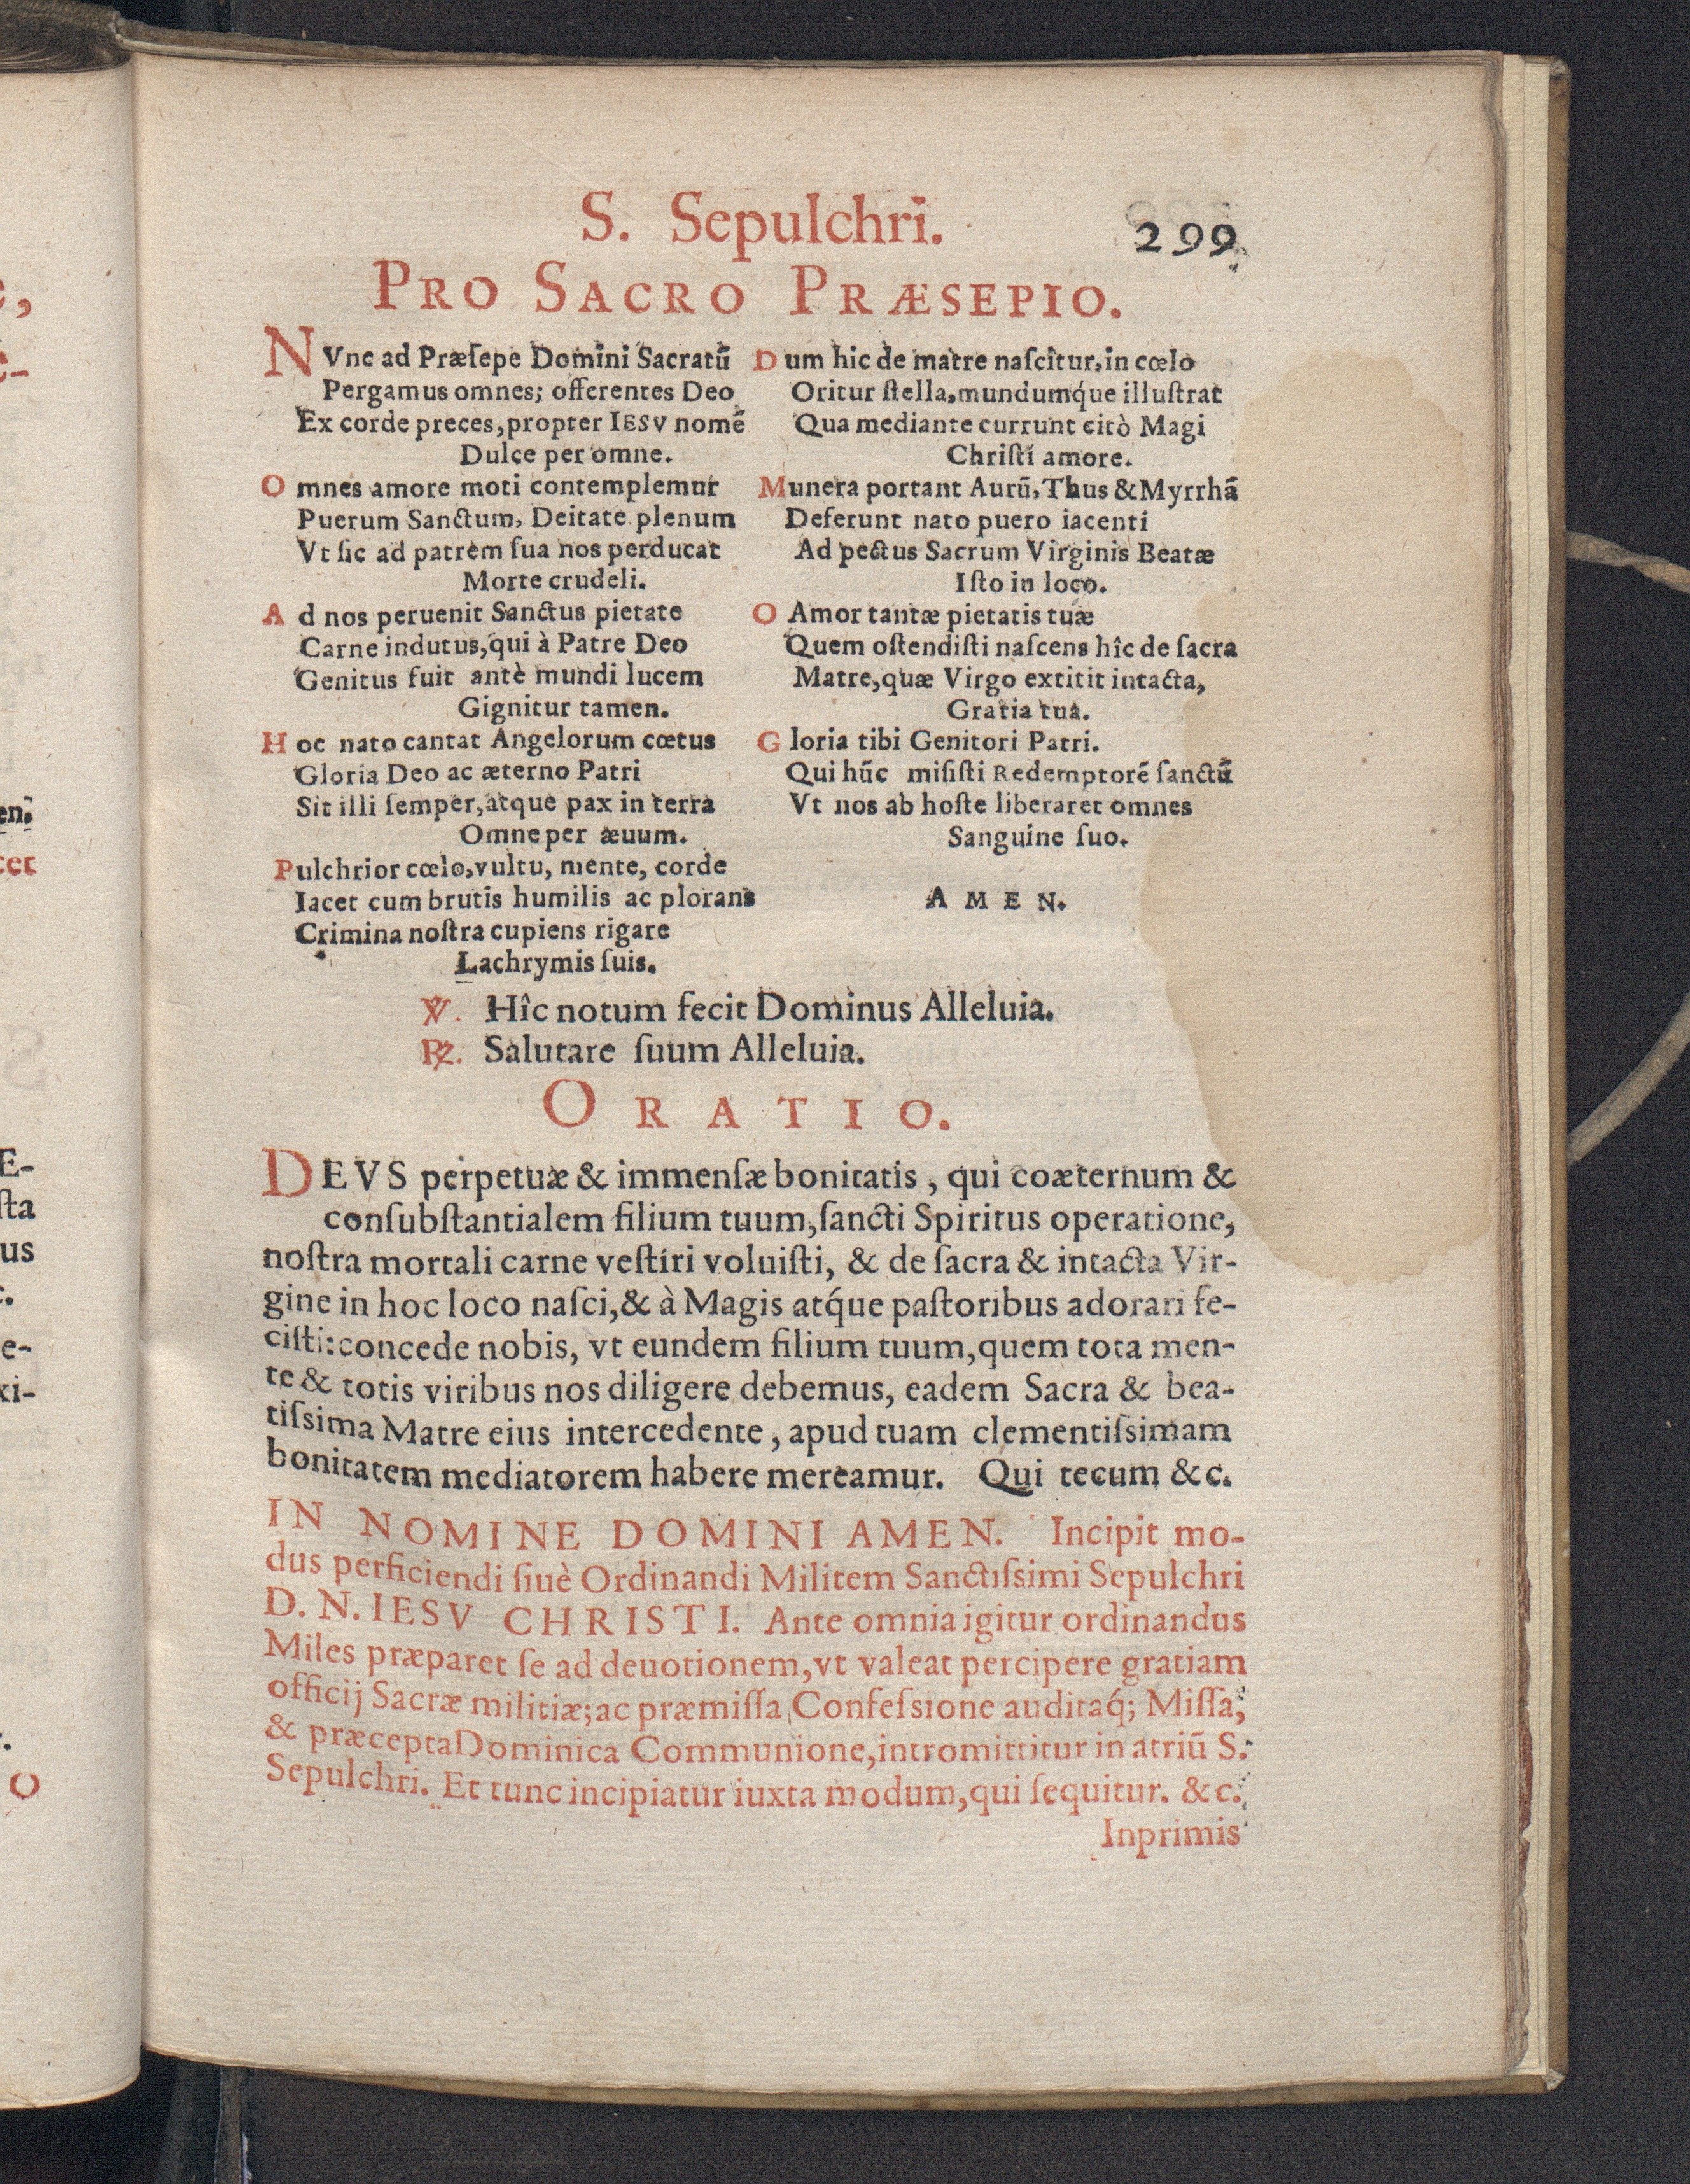 S. Sepulchri.
299
PRO SACRO PRÆSEPIO.
NVnc ad Præſepe Domini Sacratū
Pergamus omnes; offerentes Deo
Ex corde preces, propter IESV nomē
Dulce per omne.
Omnes amore moti contemplemur
Puerum Sanctum, Deitate plenum
Vt ſic ad patrem ſua nos perducat
Morte crudeli.
Ad nos peruenit Sanctus pietate
Carne indutus, qui à Patre Deo
Genitus fuit antè mundi lucem
Gignitur tamen.
Hoc nato cantat Angelorum cœtus
Gloria Deo ac æterno Patri
Sit illi ſemper, atque pax in terra
Omne per æuum.
Pulchrior cœlo, vultu, mente, corde
Iacet cum brutis humilis ac plorans
Crimina noſtra cupiens rigare
Lachrymis ſuis.
Dum hic de matre naſcitur, in cœlo
Oritur ſtella, mundumq́ue illuſtrat
Qua mediante currunt citò Magi
Chriſti amore.
Munera portant Aurū, Thus & Myrrhā
Deferunt nato puero iacenti
Ad pectus Sacrum Virginis Beatæ
Iſto in loco.
O Amor tantæ pietatis tuæ
Quem oſtendiſti naſcens hîc de ſacra
Matre, quæ Virgo extitit intacta,
Gratia tua.
Gloria tibi Genitori Patri.
Qui hūc miſiſti Redemptorē ſanctū
Vt nos ab hoſte liberaret omnes
Sanguine ſuo.
AMEN.
℣. Hîc notum fecit Dominus Alleluia.
℟. Salutare ſuum Alleluia.
ORATIO.
DEVS perpetuæ & immenſæ bonitatis, qui coæternum &
conſubſtantialem filium tuum, ſancti Spiritus operatione,
noſtra mortali carne veſtiri voluiſti, & de ſacra & intacta Vir-
gine in hoc loco naſci, & à Magis atq́ue paſtoribus adorari fe-
ciſti: concede nobis, vt eundem filium tuum, quem tota men-
te & totis viribus nos diligere debemus, eadem Sacra & bea-
tiſsima Matre eius intercedente, apud tuam clementiſsimam
bonitatem mediatorem habere mereamur. Qui tecum &c.
IN NOMINE DOMINI AMEN. Incipit mo-
dus perficiendi ſiuè Ordinandi Militem Sanctiſsimi Sepulchri
D. N. IESV CHRISTI. Ante omnia igitur ordinandus
Miles præparet ſe ad deuotionem, vt valeat percipere gratiam
officij Sacræ militiæ; ac præmiſſa Confeſsione auditaq́; Miſſa,
& præcepta Dominica Communione, intromittitur in atriū S.
Sepulchri. Et tunc incipiatur iuxta modum, qui ſequitur. &c.
Inprimis